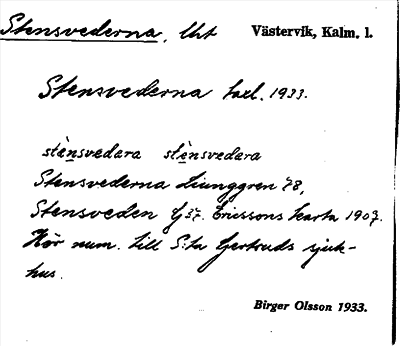 Stensvederna, Uät Västervik, Kalm. l.
Stensvederna taxl. 1933.
stènsvedara stènsvedara
Stensvederna Ljunggren 78,
Stensveden G 37. Ericssons karta 1907.
Hör num. till S:ta Gertruds sjuk-
hus.
Birger Olsson 1933.